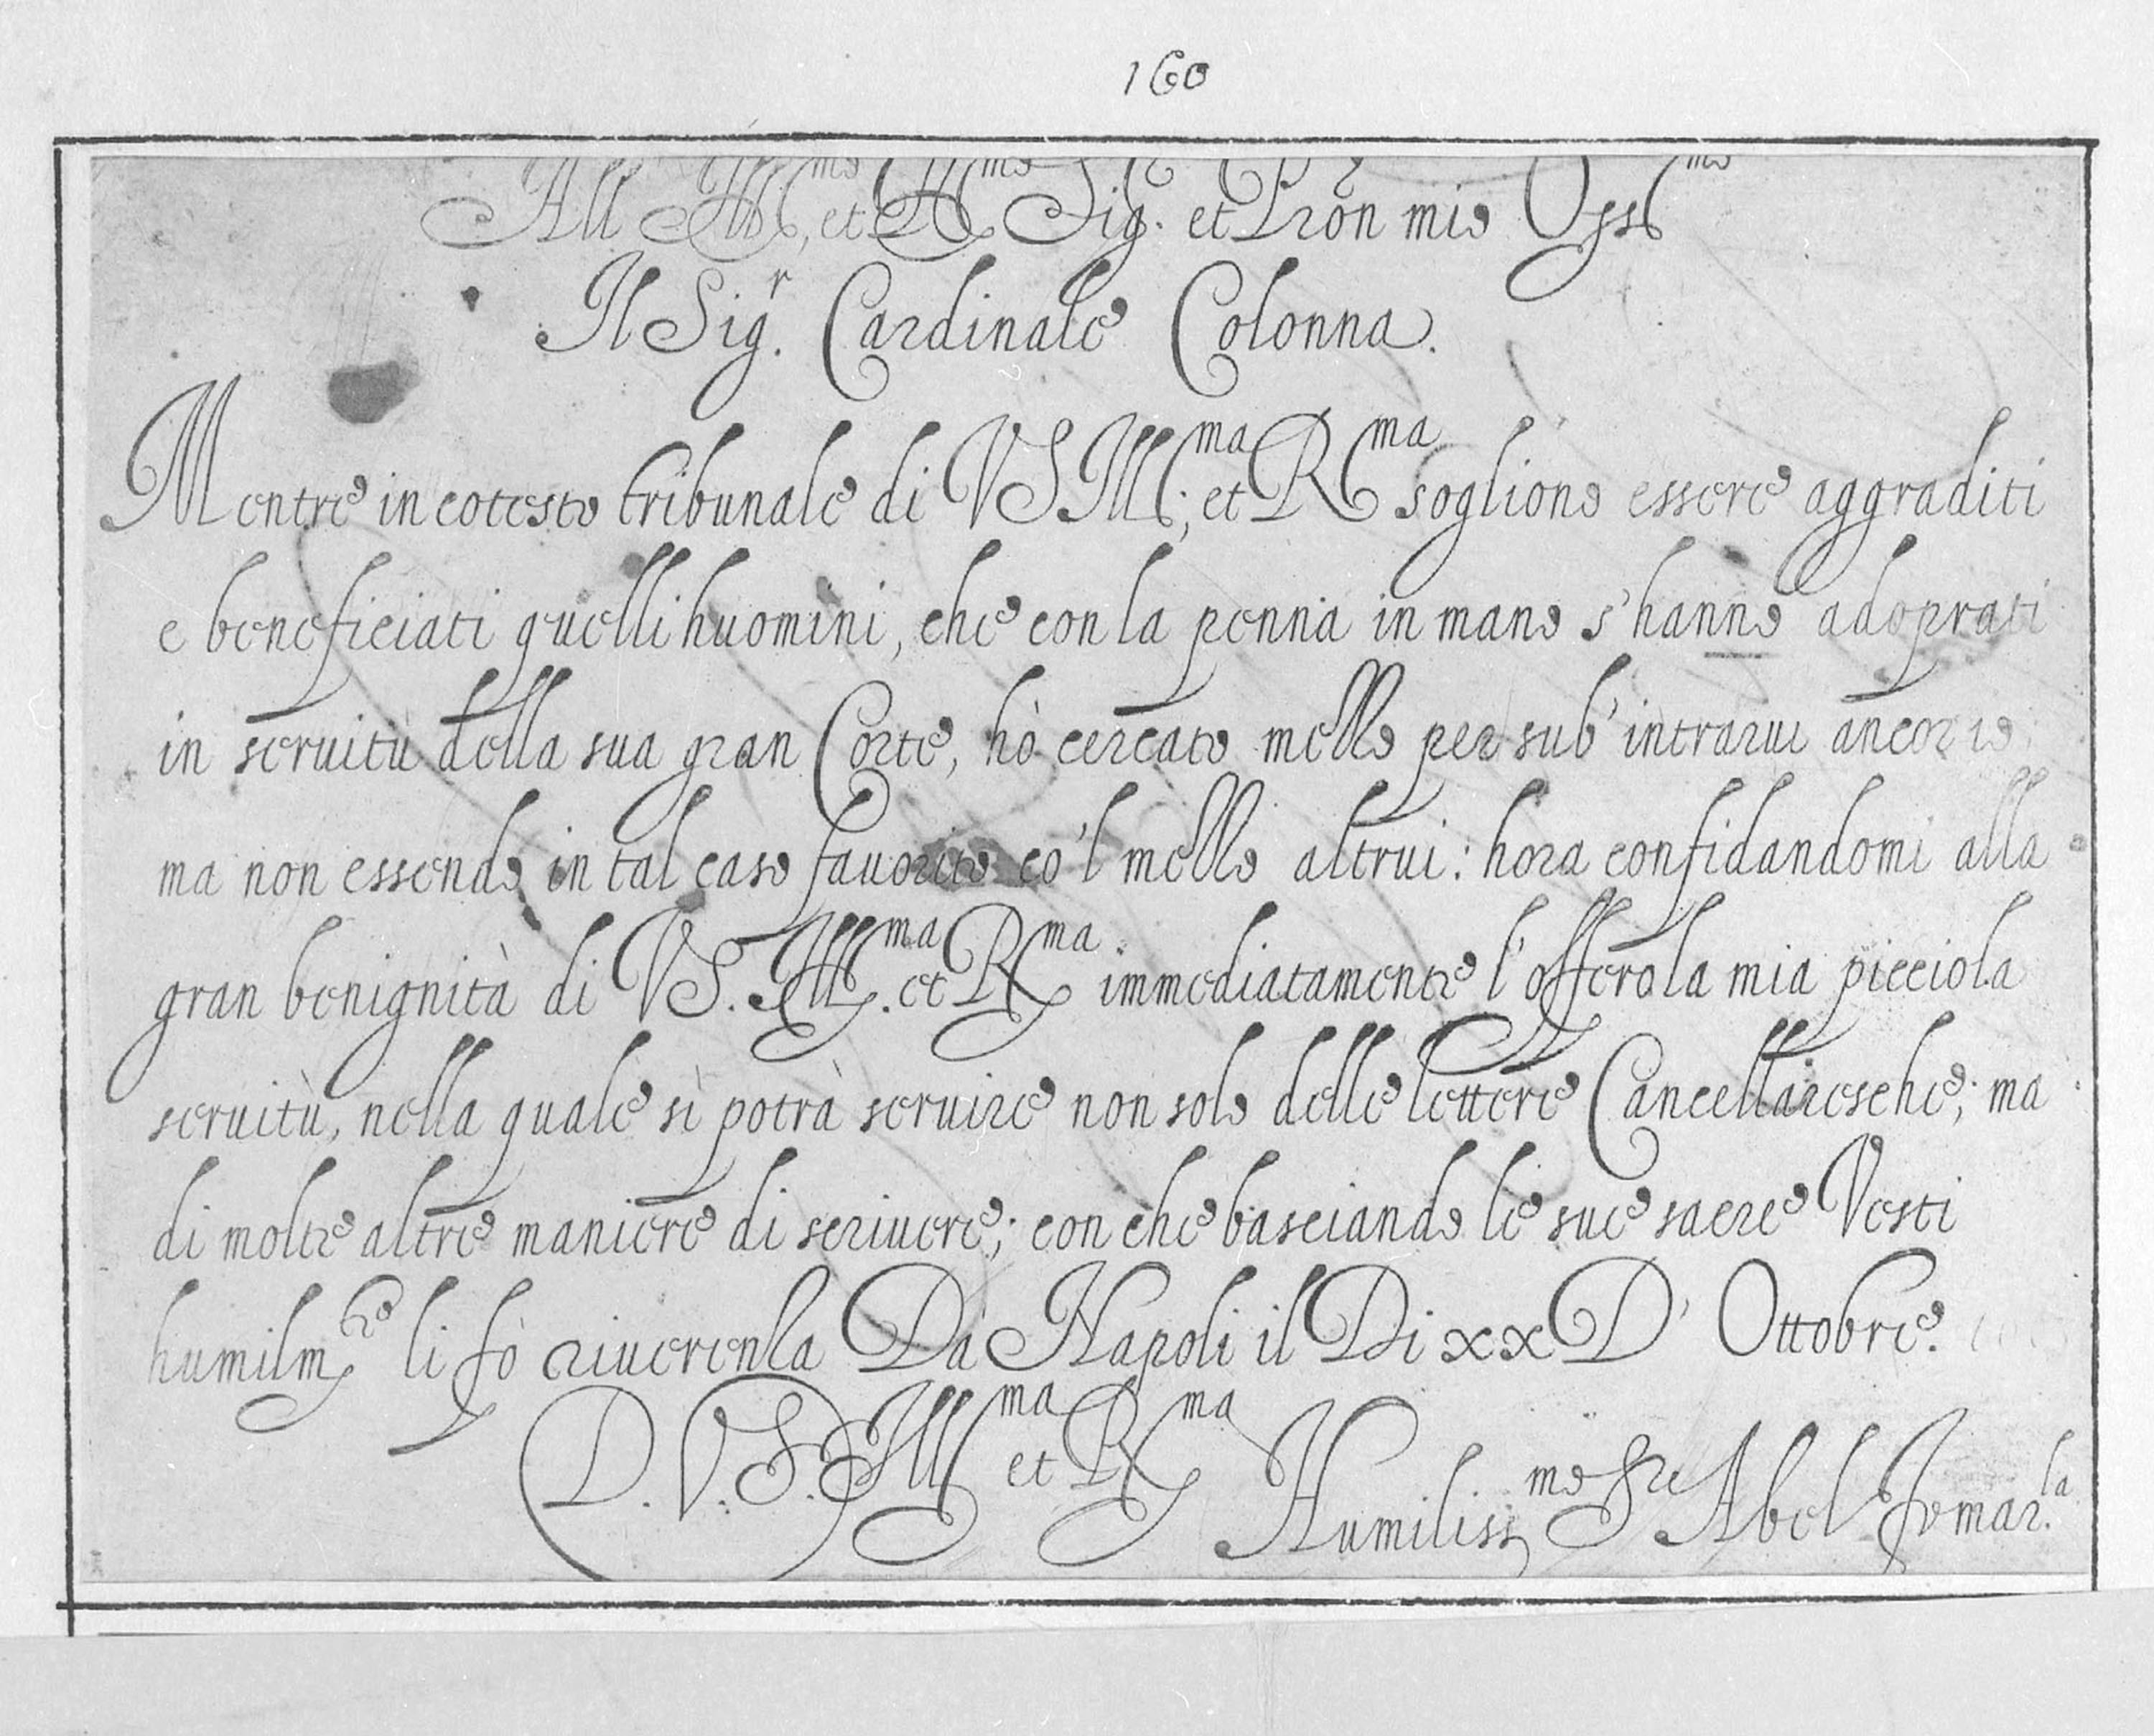 160
All Ill.mo, et R.mo Sig.r et Pron mio Oss.mo
Il Sig.r Cardinale Colonna.
Mentre in cotesto tribunale di VS Ill.ma, et R.ma sogliono essere aggraditi
e beneficiati quelli huomini, che con la penna in mano s'hanno adoprati
in seruitù della sua gran Corte, hò cercato mello per sub'intrarui ancor io
ma non essendo in tal caso fauorito co'l mello altrui: hora confidandomi alla
gran benignità di VS. Ill.ma et R.ma immediatamente l'offero la mia picciola
seruitù, nella quale sì potrà seruire non solo delle lettere Cancellaresche; ma
di molte altre maniere di scriuere; con che basciando le sue sacre Vesti
humilm.te li fò riuerenla Da Napoli il Di xx D' Ottobre.
D. V. S. Ill.ma et R.ma
Humiliss.mo Abel